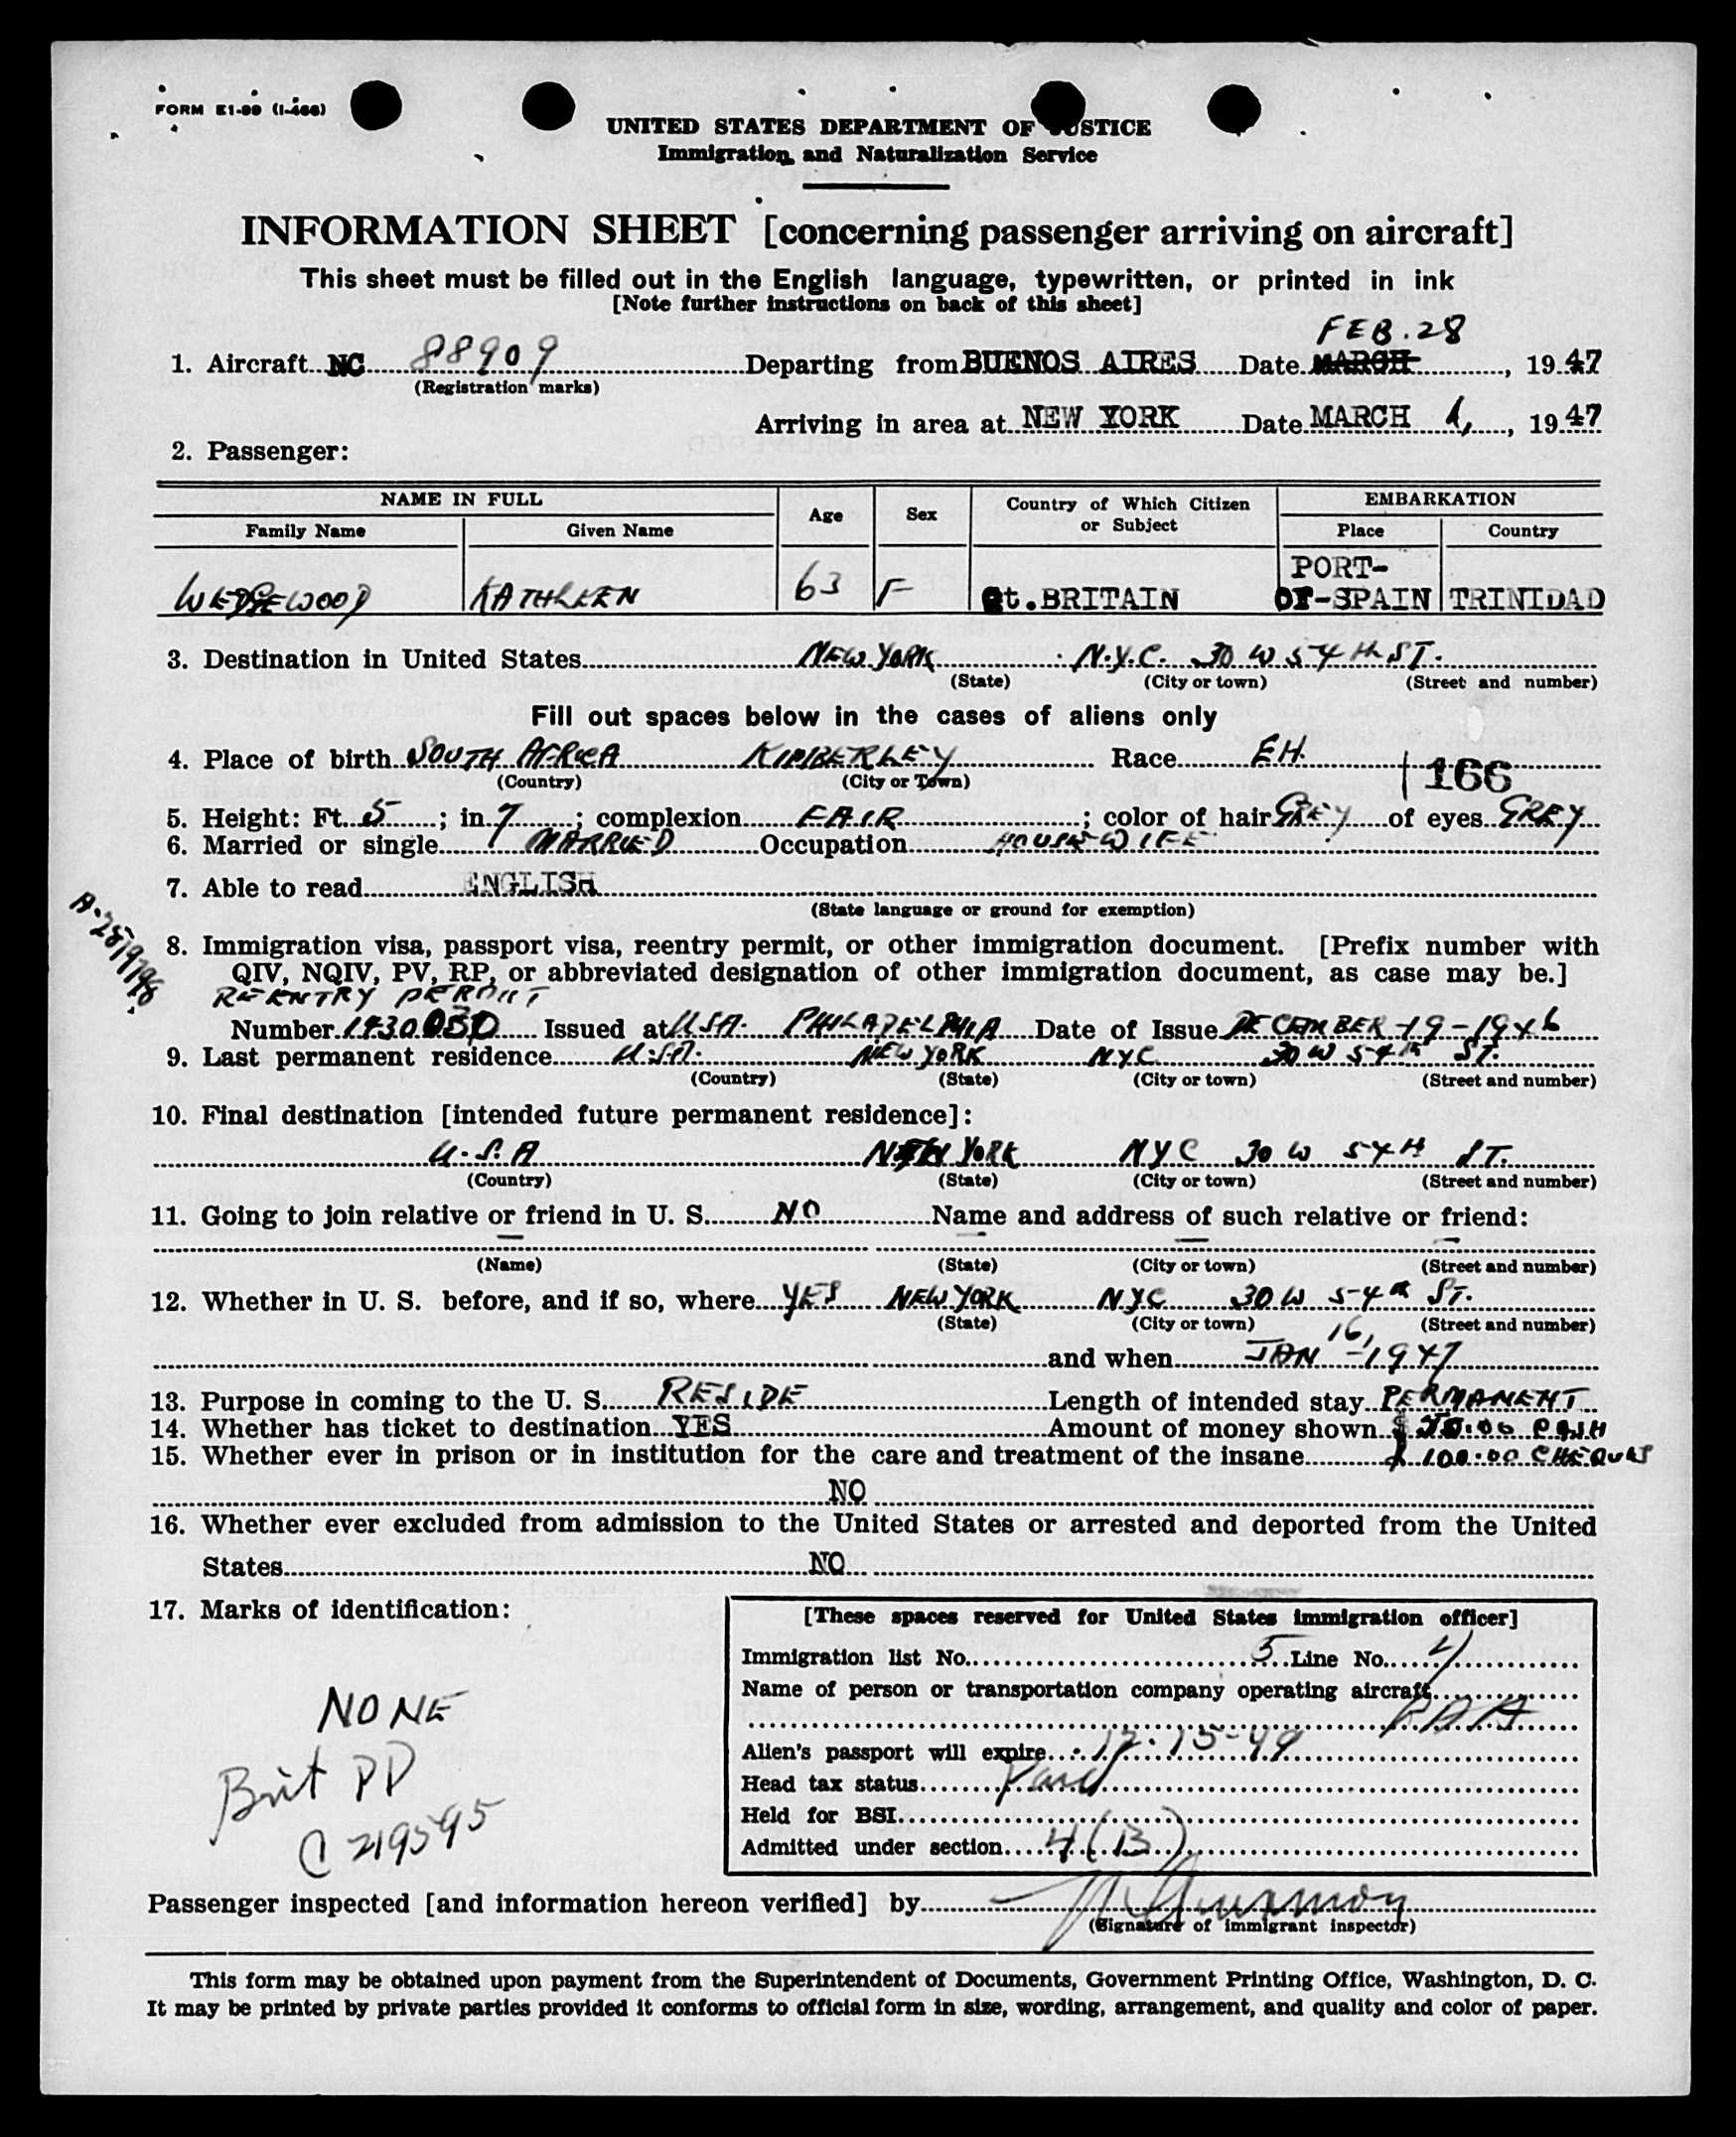 FORM E1-99 (I-466)
UNITED STATES DEPARTMENT OF JUSTICE
Immigration and Naturalization Service
INFORMATION SHEET [concerning passenger arriving on aircraft]
This sheet must be filled out in the English language, typewritten, or printed in ink
[Note further instructions on back of this sheet]
FEB. 28
1. Aircraft NC 88909 Departing from BUENOS AIRES Date MARCH, 1947
(Registration marks)
Arriving in area at NEW YORK Date MARCH 1, , 1947
2. Passenger:
NAME IN FULL Age Sex Country of Which Citizen or Subject EMBARKATION
Family Name Given Name Place Country
PORT-
WEDGEWOOD KATHLEEN 63 F Gt.BRITAIN OF-SPAIN TRINIDAD
3. Destination in United States NEW YORK N.Y.C. 30 W 54TH ST.
(State) (City or town) (Street and number)
Fill out spaces below in the cases of aliens only
4. Place of birth SOUTH AFRICA KIMBERLEY Race EH.
(Country) (City or Town)
166
5. Height: Ft. 5; in. 7; complexion FAIR; color of hair GREY of eyes GREY
6. Married or single MARRIED Occupation HOUSEWIFE
7. Able to read ENGLISH
(State language or ground for exemption)
8. Immigration visa, passport visa, reentry permit, or other immigration document. [Prefix number with
QIV, NQIV, PV, RP, or abbreviated designation of other immigration document, as case may be.]
REENTRY PERMIT
Number Issued at USA. PHILADELPHIA Date of Issue DECEMBER-19-1946
9. Last permanent residence U.S.A. NEW YORK NYC 30 W 54th ST.
(Country) (State) (City or town) (Street and number)
10. Final destination [intended future permanent residence]:
U.S.A NEW YORK NYC 30 W 54H ST.
(Country) (State) (City or town) (Street and number)
11. Going to join relative or friend in U. S. NO Name and address of such relative or friend:
— — — —
(Name) (State) (City or town) (Street and number)
12. Whether in U. S. before, and if so, where YES NEW YORK NYC 30 W 54th ST.
(State) (City or town) (Street and number)
and when JAN 16, -1947
13. Purpose in coming to the U. S. RESIDE Length of intended stay PERMANENT
14. Whether has ticket to destination YES Amount of money shown $ CASH
15. Whether ever in prison or in institution for the care and treatment of the insane $ 100.00 CHEQUES
NO
16. Whether ever excluded from admission to the United States or arrested and deported from the United
States NO
17. Marks of identification:
NONE
Brit PP
C 219595
[These spaces reserved for United States immigration officer]
Immigration list No. 5 Line No. 4
Name of person or transportation company operating aircraft
PAA
Alien's passport will expire 12-15-49
Head tax status Paid
Held for BSI
Admitted under section 4(B)
Passenger inspected [and information hereon verified] by
(Signature of immigrant inspector)
This form may be obtained upon payment from the Superintendent of Documents, Government Printing Office, Washington, D. C.
It may be printed by private parties provided it conforms to official form in size, wording, arrangement, and quality and color of paper.